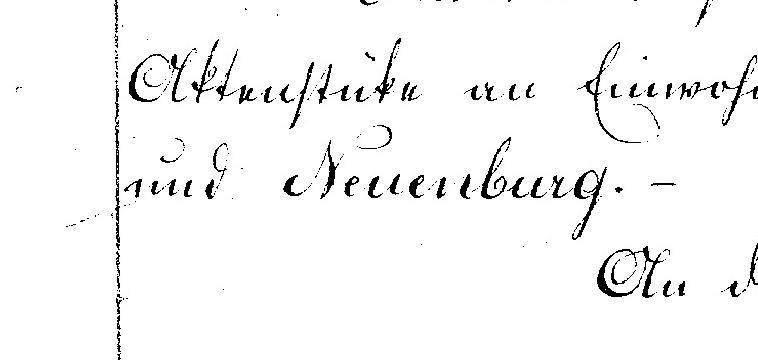 Aktenstüke an Einwoh
und Neuenburg. –
An d